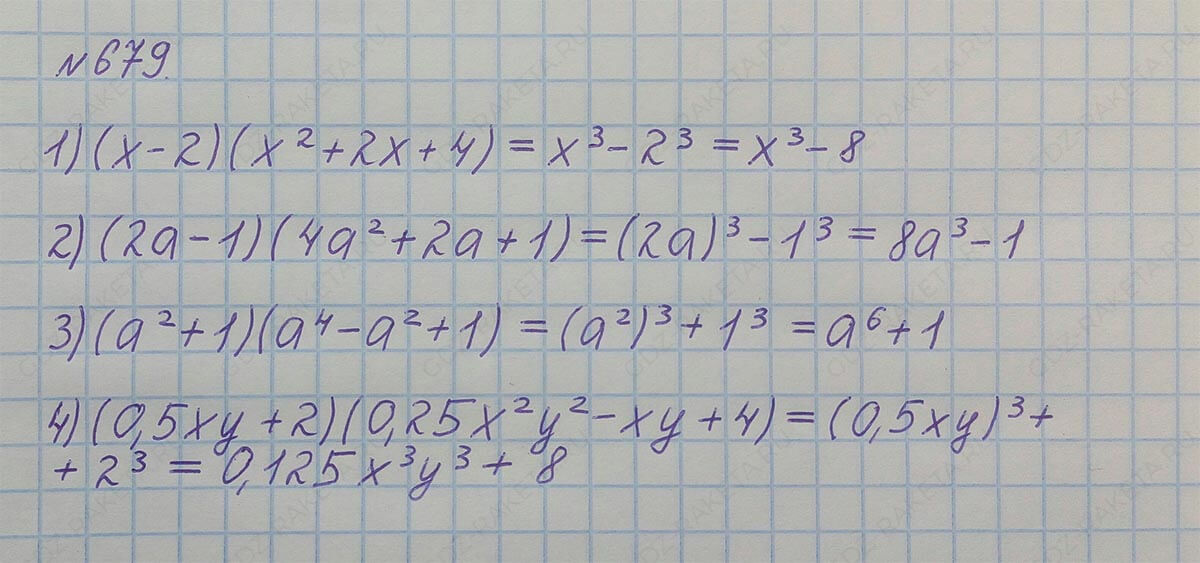 №679.
1) (x-2)(x²+2x+4)=x³-2³=x³-8
2) (2a-1)(4a²+2a+1)=(2a)³-1³=8a³-1
3) (a²+1)(a⁴-a²+1)=(a²)³+1³=a⁶+1
4) (0,5xy+2)(0,25x²y²-xy+4)=(0,5xy)³+
+2³=0,125x³y³+8